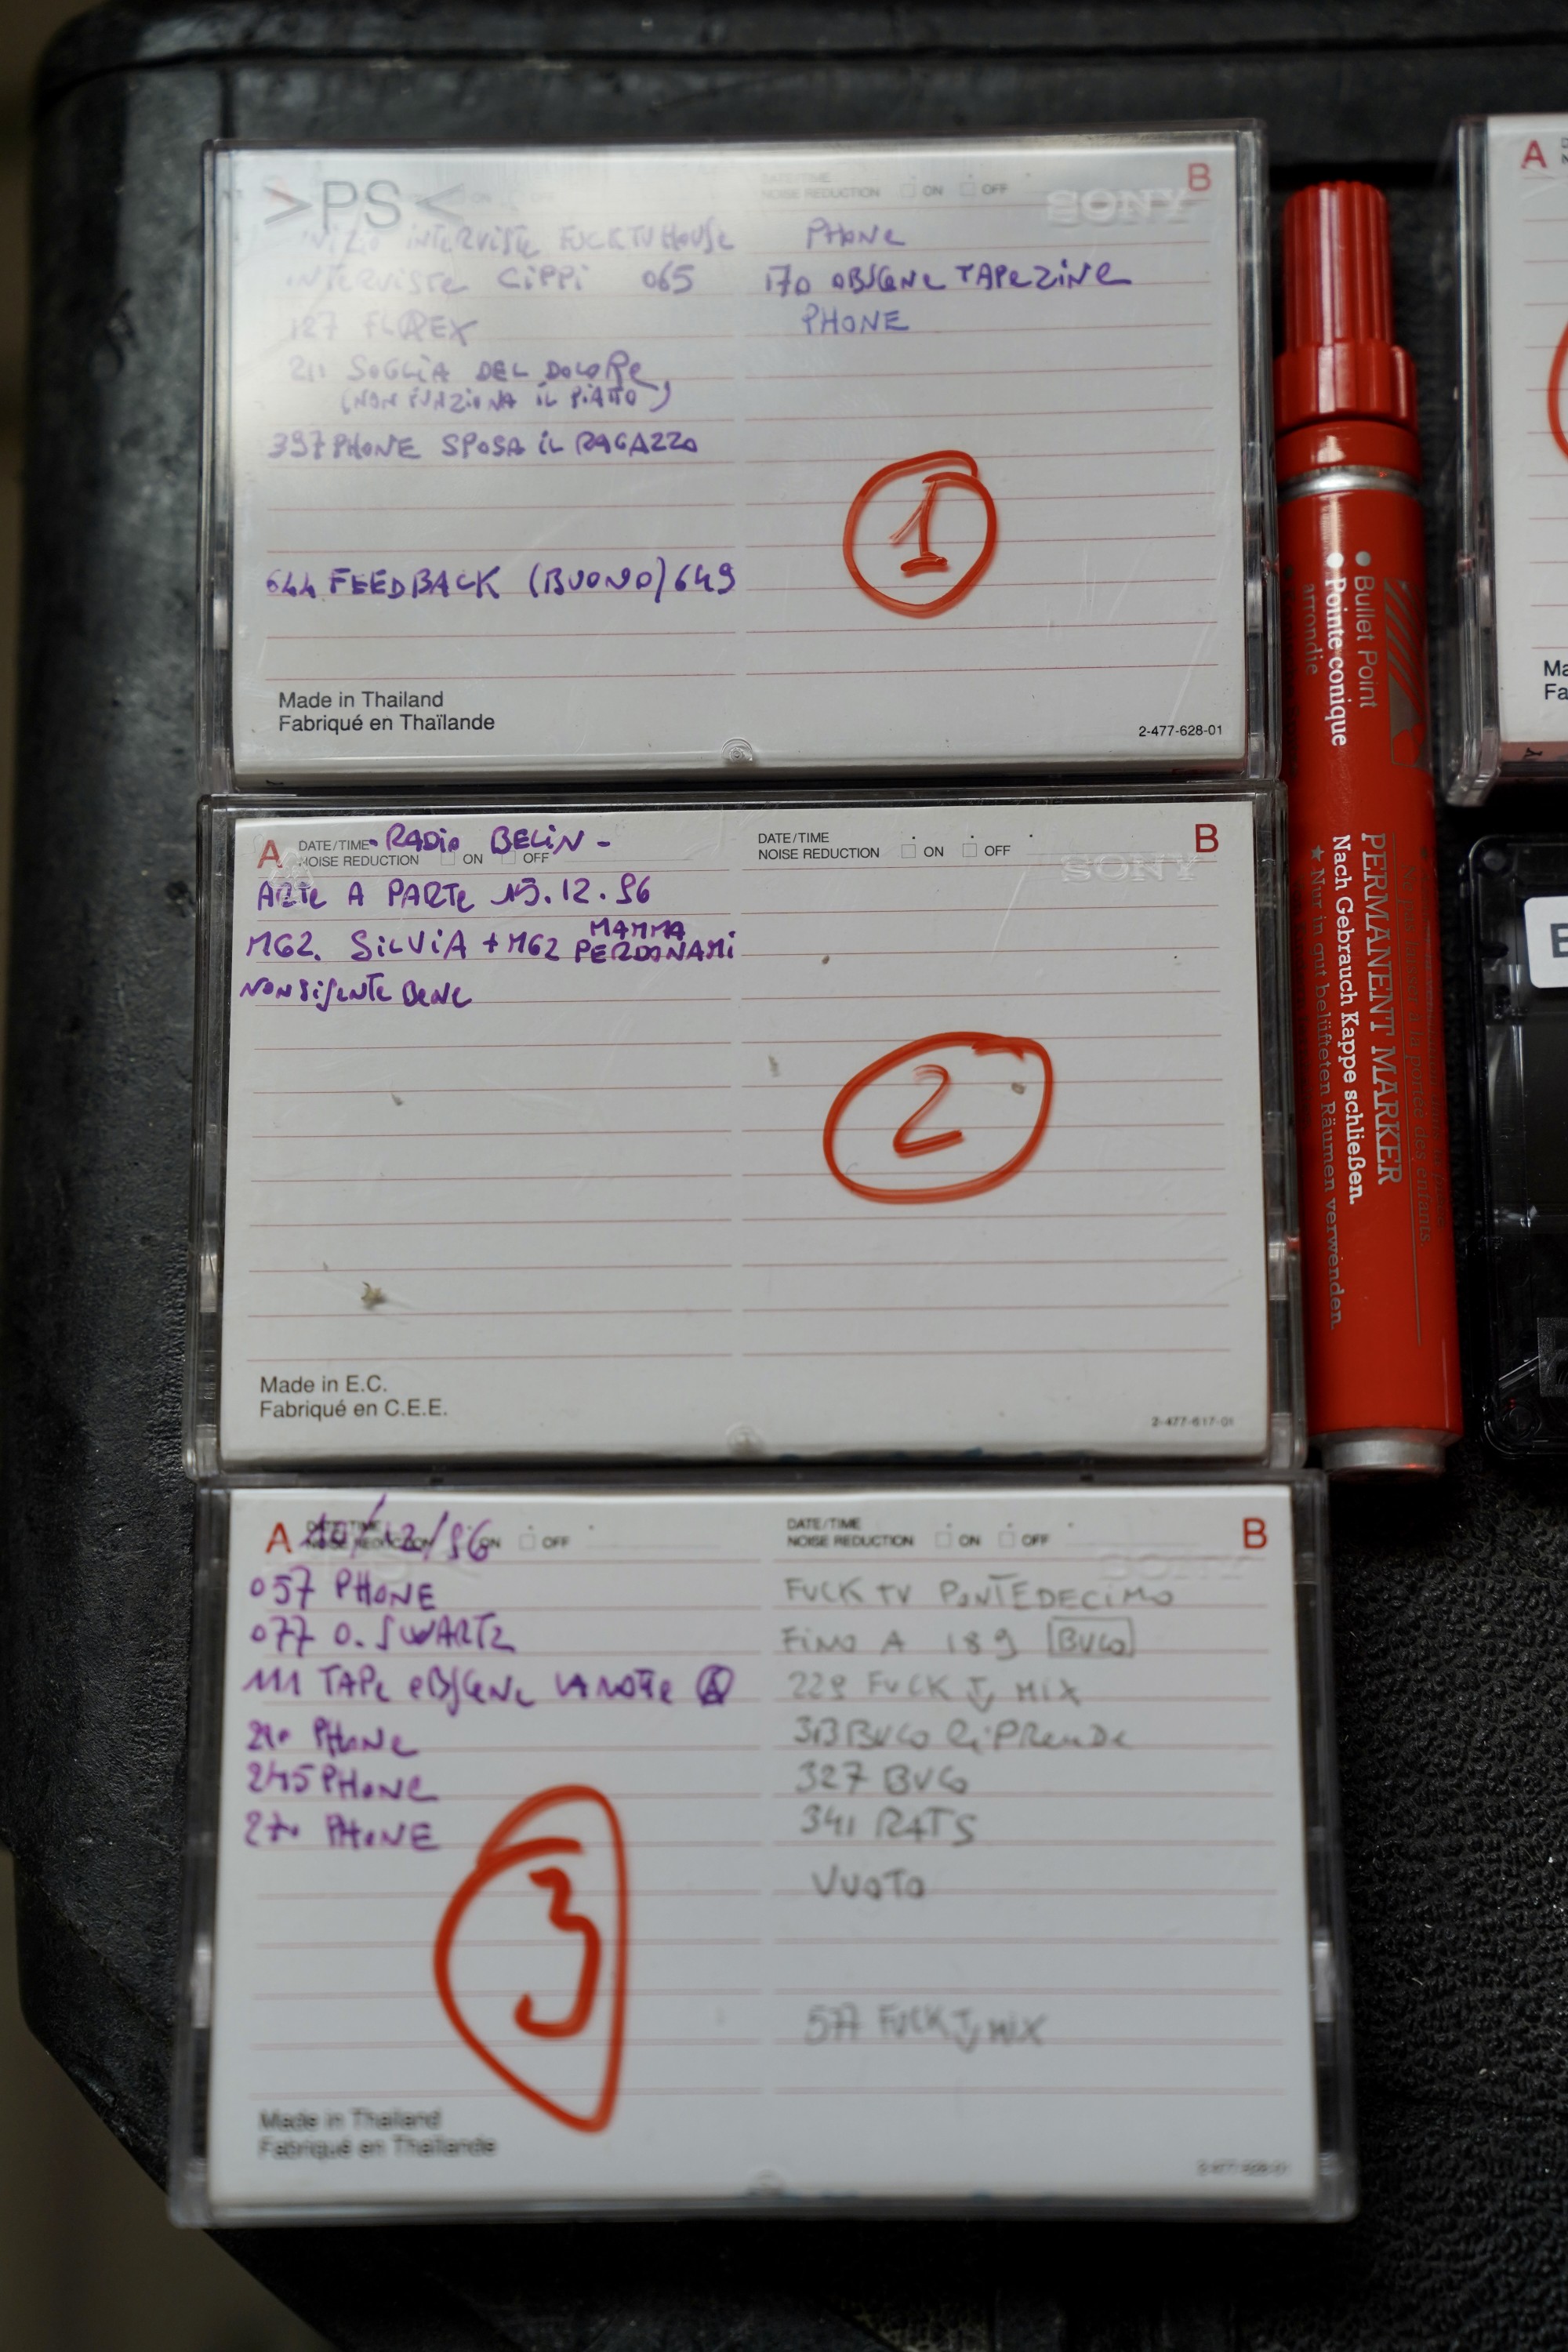 >PS<
ON OFF
DATE/TIME
NOISE REDUCTION ON OFF
SONY
B
INIZIO INTERVISTE FUCK TV HOUSE
INTERVISTE CIPPI 065
127 FLAREX
211 SOGLIA DEL DOLORE
(NON FUNZIONA IL PIATTO)
397 PHONE SPOSA IL RAGAZZO
644 FEEDBACK (BUONO) 649
PHONE
170 OBSCENE TAPEZINE
PHONE
1
Made in Thailand
Fabriqué en Thaïlande
2-477-628-01
A
DATE/TIME
NOISE REDUCTION ON OFF
- RADIO BELIN -
ARTE A PARTE 15.12.96
MG2. SILVIA + MG2 MAMMA
PERDONAMI
NON SI SENTE BENE
DATE/TIME
NOISE REDUCTION ON OFF
SONY
B
2
Made in E.C.
Fabriqué en C.E.E.
2-477-617-01
A
DATE/TIME
NOISE REDUCTION ON OFF
/12/96
057 PHONE
077 O. SWARTZ
111 TAPE OBSCENE LA NOTTE A
210 PHONE
245 PHONE
270 PHONE
DATE/TIME
NOISE REDUCTION ON OFF
SONY
B
FUCK TV PONTEDECIMO
FINO A 189 BUCO
229 FUCK TV MIX
313 BUCO RIPRENDE
327 BUCO
341 RATS
VUOTO
577 FUCK TV MIX
3
Made in Thailand
Fabriqué en Thaïlande
2-477-628-01
Bullet Point
Pointe conique
arrondie
PERMANENT MARKER
Nach Gebrauch Kappe schließen.
★ Nur in gut belüfteten Räumen verwenden.
Ne pas laisser à la portée des enfants.
A
Ma
Fa